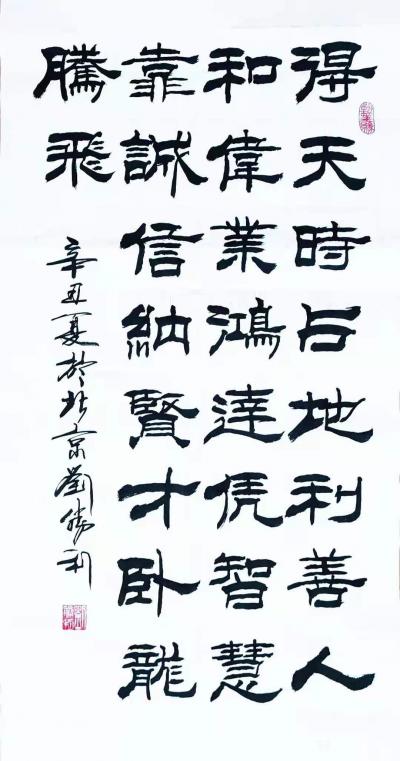 得天時占地利善人
和偉業鴻達凭智慧
靠誠信納賢才卧龍
騰飛
辛丑夏於北京劉勝利